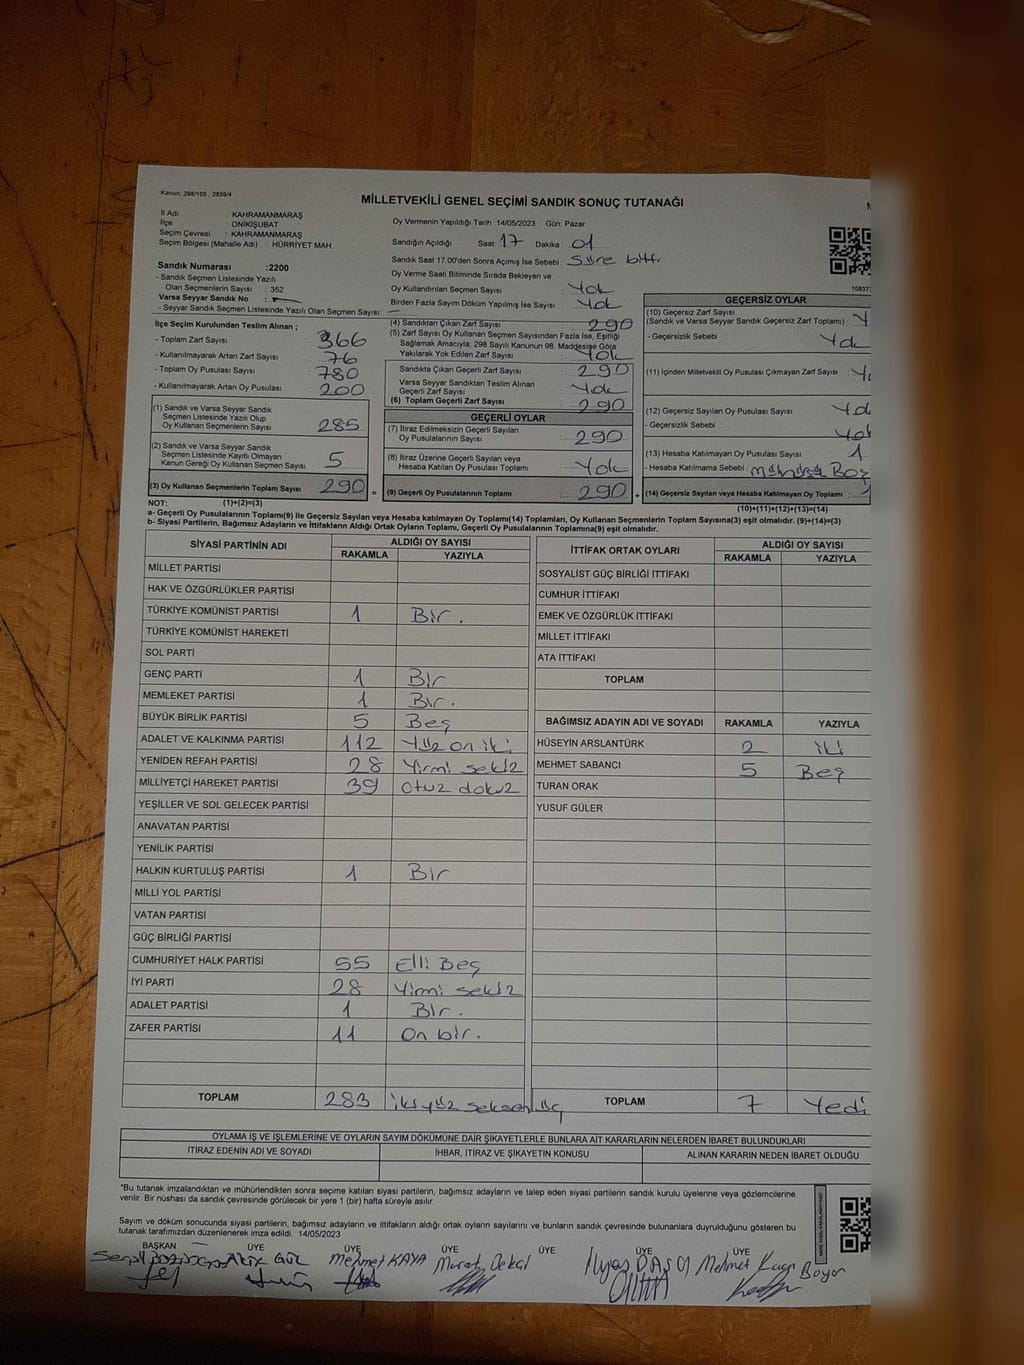 Kanun: 298/105 , 2839/4
MİLLETVEKİLİ GENEL SEÇİMİ SANDIK SONUÇ TUTANAĞI
İl Adı : KAHRAMANMARAŞ
İlçe : ONİKİŞUBAT
Seçim Çevresi : KAHRAMANMARAŞ
Seçim Bölgesi (Mahalle Adı) : HÜRRİYET MAH.
Oy Vermenin Yapıldığı Tarih :14/05/2023 Gün: Pazar
Sandığın Açıldığı Saat 17 Dakika : 01
Sandık Saat 17.00'den Sonra Açımış İse Sebebi : Süre bitti
Oy Verme Saati Bitiminde Sırada Bekleyen ve
Oy Kullandırılan Seçmen Sayısı : Yok
Birden Fazla Sayım Döküm Yapılmış İse Sayısı : Yok
Sandık Numarası :2200
- Sandık Seçmen Listesinde Yazılı
Olan Seçmenlerin Sayısı : 352
Varsa Seyyar Sandık No : —
- Seyyar Sandık Seçmen Listesinde Yazılı Olan Seçmen Sayısı: —
İlçe Seçim Kurulundan Teslim Alınan ;
- Toplam Zarf Sayısı : 366
- Kullanılmayarak Artan Zarf Sayısı : 76
- Toplam Oy Pusulası Sayısı : 780
- Kullanılmayarak Artan Oy Pusulası : 200
(1) Sandık ve Varsa Seyyar Sandık
Seçmen Listesinde Yazılı Olup
Oy Kullanan Seçmenlerin Sayısı : 285
(2) Sandık ve Varsa Seyyar Sandık
Seçmen Listesinde Kayıtlı Olmayan
Kanun Gereği Oy Kullanan Seçmen Sayısı : 5
(3) Oy Kullanan Seçmenlerin Toplam Sayısı : 290
(1)+(2)=(3)
(4) Sandıktan Çıkan Zarf Sayısı : 290
(5) Zarf Sayısı Oy Kullanan Seçmen Sayısından Fazla İse, Eşitliği
Sağlamak Amacıyla; 298 Sayılı Kanunun 98. Maddesine Göre
Yakılarak Yok Edilen Zarf Sayısı : Yok
Sandıkta Çıkan Geçerli Zarf Sayısı : 290
Varsa Seyyar Sandıktan Teslim Alınan
Geçerli Zarf Sayısı : Yok
(6) Toplam Geçerli Zarf Sayısı : 290
GEÇERLİ OYLAR
(7) İtiraz Edilmeksizin Geçerli Sayılan
Oy Pusulalarının Sayısı : 290
(8) İtiraz Üzerine Geçerli Sayılan veya
Hesaba Katılan Oy Pusulası Toplamı : Yok
= (9) Geçerli Oy Pusulalarının Toplamı : 290 +
GEÇERSİZ OYLAR
(10) Geçersiz Zarf Sayısı
(Sandık ve Varsa Seyyar Sandık Geçersiz Zarf Toplamı) :
- Geçersizlik Sebebi : Yok
(11) İçinden Milletvekili Oy Pusulası Çıkmayan Zarf Sayısı :
(12) Geçersiz Sayılan Oy Pusulası Sayısı : Yok
- Geçersizlik Sebebi : Yok
(13) Hesaba Katılmayan Oy Pusulası Sayısı : 1
- Hesaba Katılmama Sebebi : Boş
(14) Geçersiz Sayılan veya Hesaba Katılmayan Oy Toplamı :
(10)+(11)+(12)+(13)=(14)
NOT:
a- Geçerli Oy Pusulalarının Toplamı(9) ile Geçersiz Sayılan veya Hesaba katılmayan Oy Toplamı(14) Toplamları, Oy Kullanan Seçmenlerin Toplam Sayısına(3) eşit olmalıdır. (9)+(14)=(3)
b- Siyasi Partilerin, Bağımsız Adayların ve İttifakların Aldığı Ortak Oyların Toplamı, Geçerli Oy Pusulalarının Toplamına(9) eşit olmalıdır.
SİYASİ PARTİNİN ADI ALDIĞI OY SAYISI
RAKAMLA YAZIYLA
MİLLET PARTİSİ
HAK VE ÖZGÜRLÜKLER PARTİSİ
TÜRKİYE KOMÜNİST PARTİSİ 1 Bir.
TÜRKİYE KOMÜNİST HAREKETİ
SOL PARTİ
GENÇ PARTİ 1 Bir
MEMLEKET PARTİSİ 1 Bir.
BÜYÜK BİRLİK PARTİSİ 5 Beş
ADALET VE KALKINMA PARTİSİ 112 Yüz on iki
YENİDEN REFAH PARTİSİ 28 Yirmi sekiz
MİLLİYETÇİ HAREKET PARTİSİ 39 Otuz dokuz
YEŞİLLER VE SOL GELECEK PARTİSİ
ANAVATAN PARTİSİ
YENİLİK PARTİSİ
HALKIN KURTULUŞ PARTİSİ 1 Bir
MİLLİ YOL PARTİSİ
VATAN PARTİSİ
GÜÇ BİRLİĞİ PARTİSİ
CUMHURİYET HALK PARTİSİ 55 Elli Beş
İYİ PARTİ 28 Yirmi sekiz
ADALET PARTİSİ 1 Bir.
ZAFER PARTİSİ 11 On bir.
TOPLAM 283 iki yüz seksen üç
İTTİFAK ORTAK OYLARI ALDIĞI OY SAYISI
RAKAMLA YAZIYLA
SOSYALİST GÜÇ BİRLİĞİ İTTİFAKI
CUMHUR İTTİFAKI
EMEK VE ÖZGÜRLÜK İTTİFAKI
MİLLET İTTİFAKI
ATA İTTİFAKI
TOPLAM
BAĞIMSIZ ADAYIN ADI VE SOYADI RAKAMLA YAZIYLA
HÜSEYİN ARSLANTÜRK 2 iki
MEHMET SABANCI 5 Beş
TURAN ORAK
YUSUF GÜLER
TOPLAM 7 Yedi
OYLAMA İŞ VE İŞLEMLERİNE VE OYLARIN SAYIM DÖKÜMÜNE DAİR ŞİKAYETLERLE BUNLARA AİT KARARLARIN NELERDEN İBARET BULUNDUKLARI
İTİRAZ EDENİN ADI VE SOYADI İHBAR, İTİRAZ VE ŞİKAYETİN KONUSU ALINAN KARARIN NEDEN İBARET OLDUĞU
*Bu tutanak imzalandıktan ve mühürlendikten sonra seçime katılan siyasi partilerin, bağımsız adayların ve talep eden siyasi partilerin sandık kurulu üyelerine veya gözlemcilerine
verilir. Bir nüshası da sandık çevresinde görülecek bir yere 1 (bir) hafta süreyle asılır.
Sayım ve döküm sonucunda siyasi partilerin, bağımsız adayların ve ittifakların aldığı ortak oyların sayılarını ve bunların sandık çevresinde bulunanlara duyrulduğunu gösteren bu
tutanak tarafımızdan düzenlenerek imza edildi. 14/05/2023
BAŞKAN ÜYE ÜYE ÜYE ÜYE ÜYE ÜYE
GÜL Mehmet KAYA Murat İlyas Mehmet